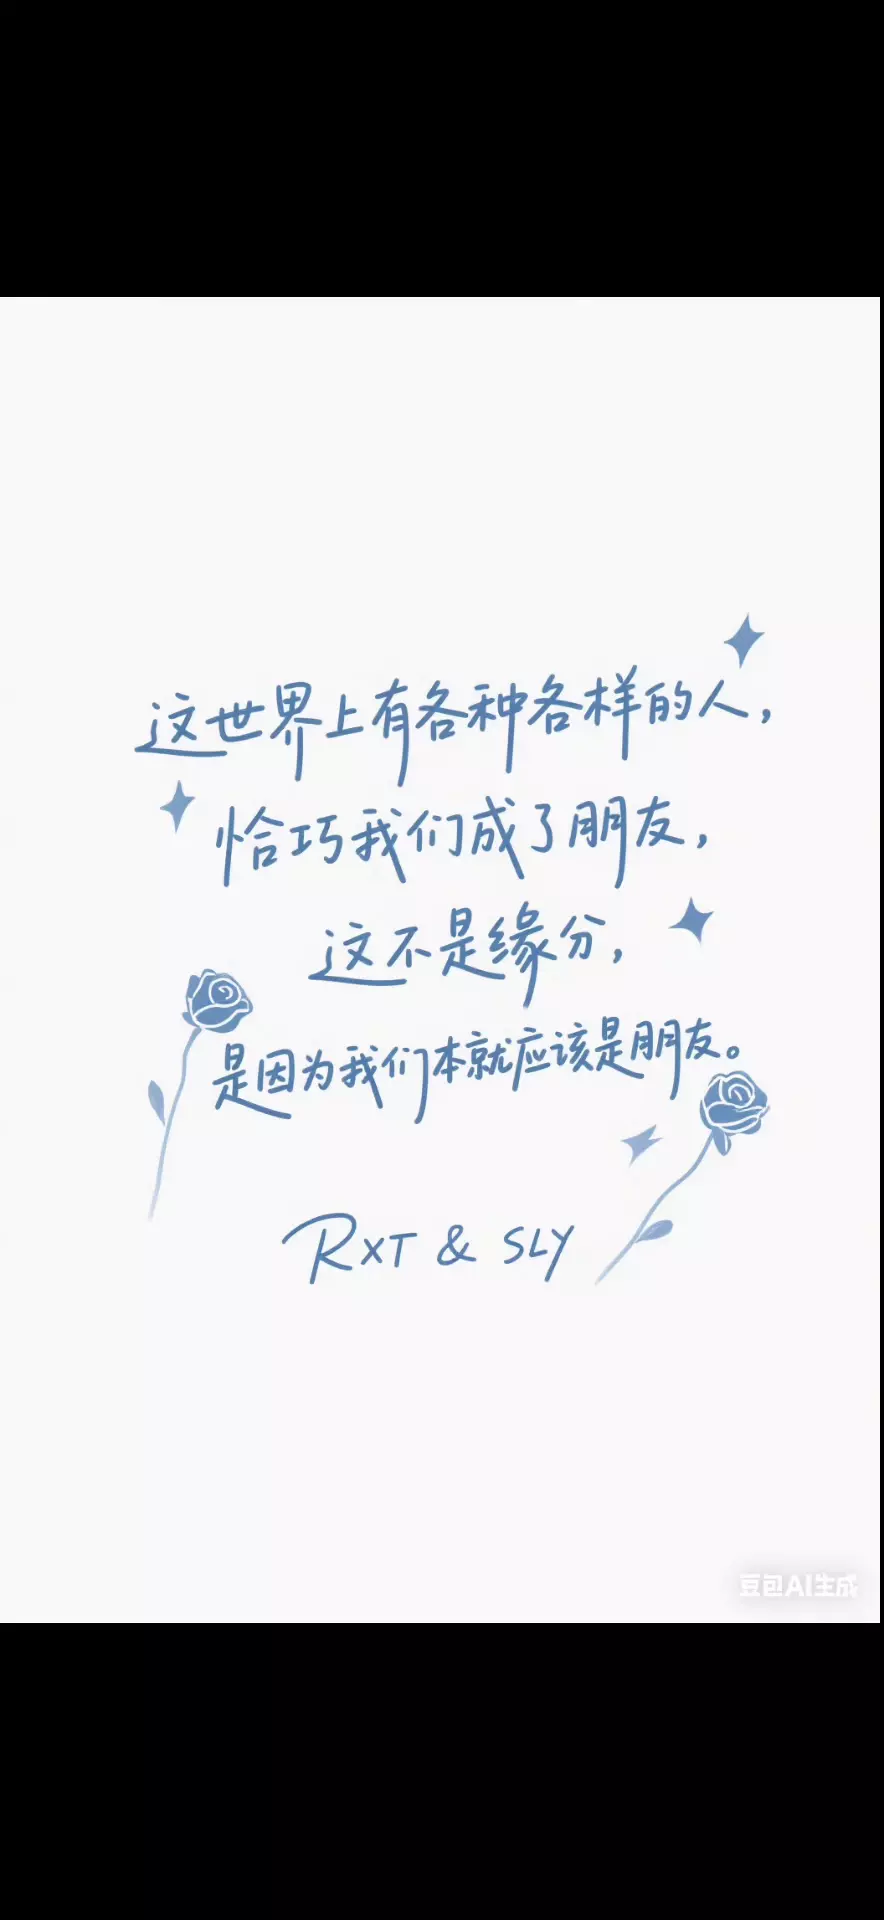 这世界上有各种各样的人，
恰巧我们成了朋友，
这不是缘分，
是因为我们本就应该是朋友。
RXT & SLY
豆包AI生成